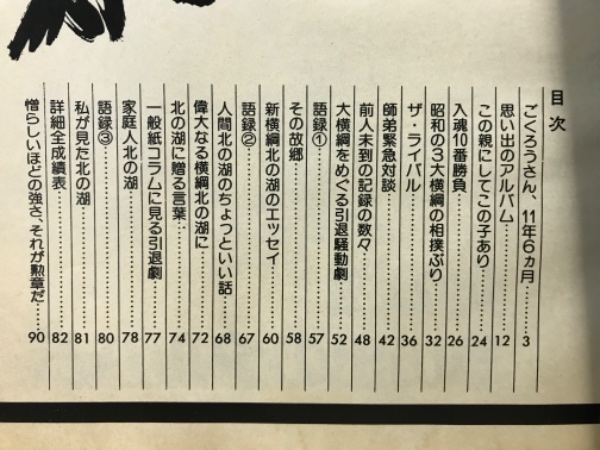 目次
ごくろうさん、11年6ヵ月………3
思い出のアルバム………12
この親にしてこの子あり………24
入魂10番勝負………26
昭和の3大横綱の相撲ぶり………32
ザ・ライバル………36
師弟緊急対談………42
前人未到の記録の数々………48
大横綱をめぐる引退騒動劇………52
語録①………57
その故郷………58
新横綱北の湖のエッセイ………60
語録②………67
人間北の湖のちょっといい話………68
偉大なる横綱北の湖に………72
北の湖に贈る言葉………74
一般紙コラムに見る引退劇………77
家庭人北の湖………78
語録③………80
私が見た北の湖………81
詳細全成績表………82
憎らしいほどの強さ、それが勲章だ………90